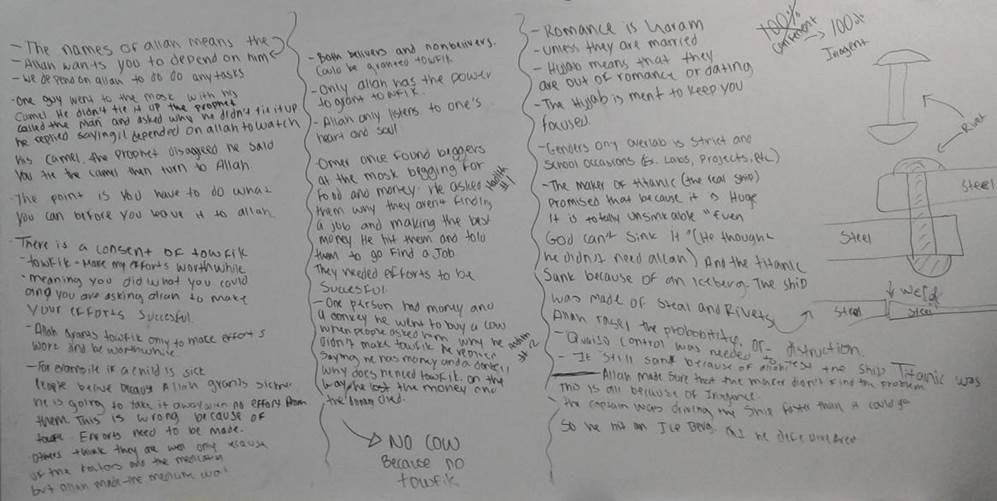 - The names of allah means the
- Allah wants you to depend on him
- We depend on allah to do do any tasks
- One guy went to the mosk with his
camel He didn't tie it up the prophet
called the man and asked why he didn't tie it up
he replied saying i depended on allah to watch
his camel. the Prophet disagreed he said
You tie the camel then turn to Allah
- The point is you have to do what
you can before you leave it to allah.
- There is a consent of towfik
- towfik - Make my efforts worthwhile
- meaning you did what you could
and you are asking allah to make
your efforts succesful
- Allah grants towfik only to make efforts
work and be worthwhile.
- For example if a child is sick
People belive because Allah grants sickness
he is going to take it away with no effort from
them. This is wrong because of
towfik Efforts need to be made.
others think they are well only because
of the doctors and the medicine
but allah made the medicine work
- Both belivers and nonbelivers.
Could be granted towfik
- Only allah has the power
to grant towfik.
- Allah only listens to one's
heart and soul
- Omer once found beggers
at the mosk begging for
food and money. He asked
them why they arent finding
a job and making the best
money He hit them and told
them to go find a Job
They needed efforts to be
Succesful
- One person had money and
a donkey he went to buy a cow
when people asked him why he
didn't make towfik he replied
saying he has money and a donkey
why does he need towfik. on the
way he lost the money and
the donkey died.
NO COW
Because no
towfik
- Romance is haram
- Unless they are married
- Hijab means that they
are out of romance or dating
- The Hijab is ment to keep you
focused.
- Genders ony overlab is strict and
School occasions (Ex. Labs, Projects, etc)
- The maker of titanic (the real ship)
Promised that because it is Huge
It is totally unsinkable "Even
God can't Sink it" (He thought
he didn't need allah) And the titanic
Sank because of an iceberg - The ship
was made of Steal and Rivets
Allah raises the probobility of distruction.
- Quality control was needed to
- It still sank because of the ship Titanic was
- Allah made sure that the maker didn't find the problem
This is all because of Iragence.
- the captain was driving the ship faster than it could go
So he hit an Ice Berg
100%
Confident
→ 100%
Iragent
Rivet
Steel
Steel
Weld
Steel
Steel